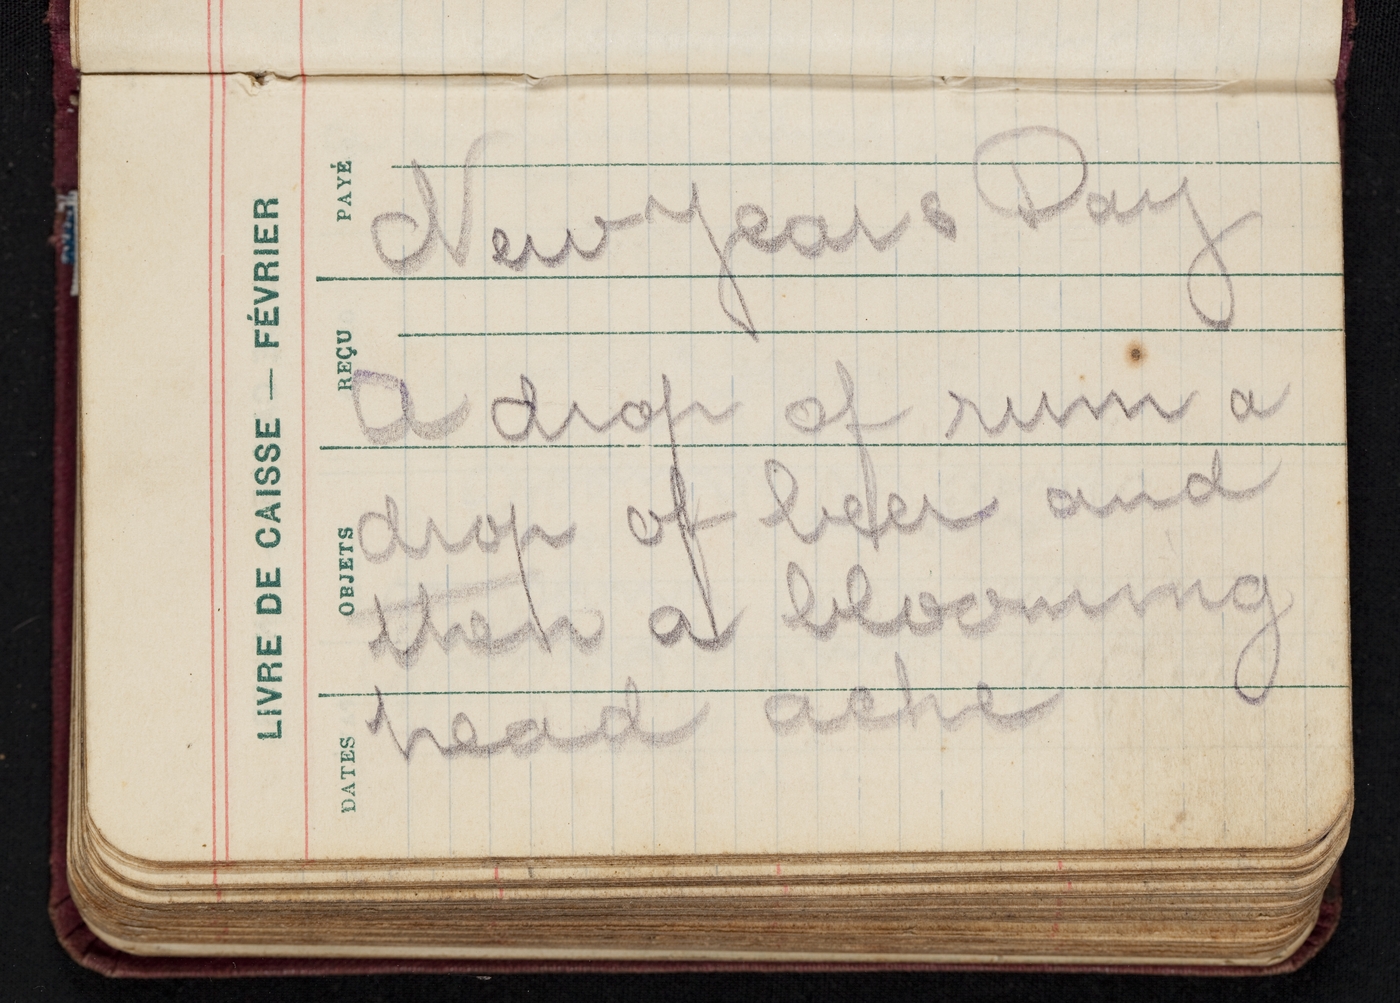 LIVRE DE CAISSE — FÉVRIER
DATES OBJETS REÇU PAYÉ
New Years Day
A drop of rum a
drop of beer and
then a blooming
head ache